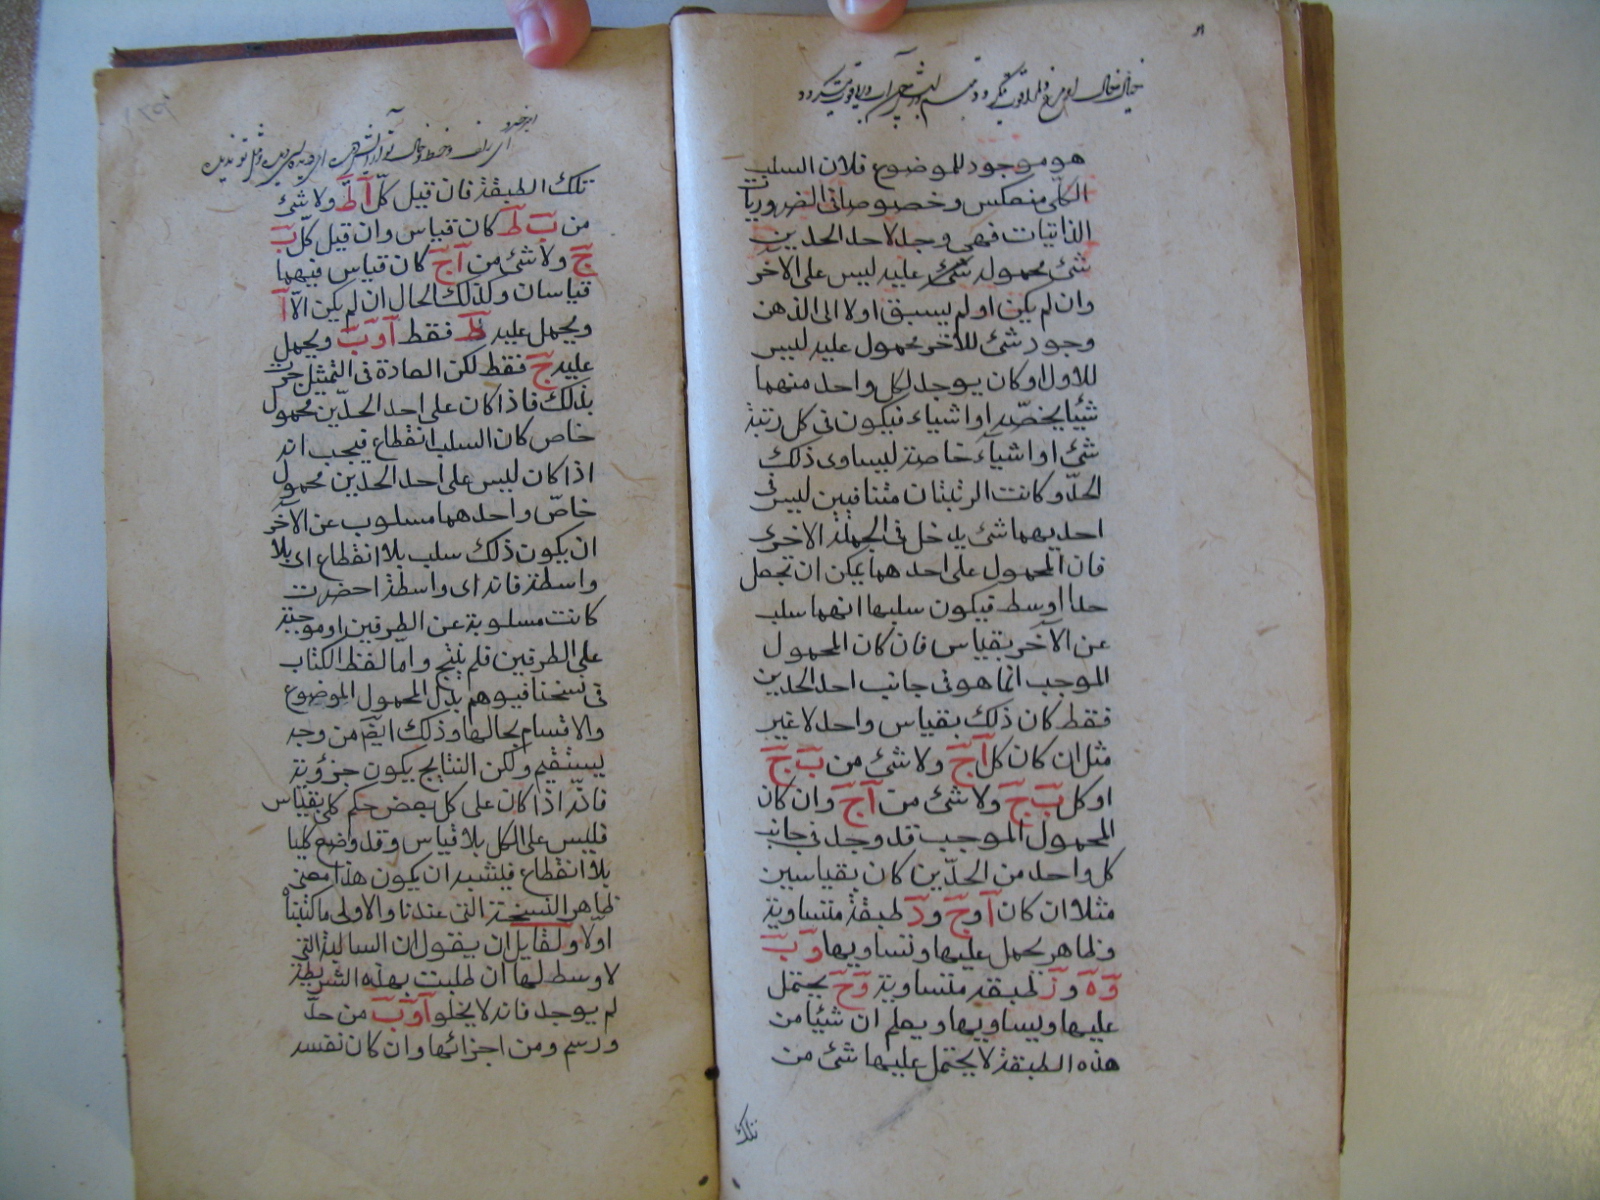 هو موجود للموضوع فلان السلب
الكلى منعكس وخصوصا فى الضروريات
الذاتيات فهى وجد لاحد الحدين
شئ محمول عليه ليس على الاخر
وان لم يكن او لم يسبق اولا الى الذهن
وجود شئ للاخر محمول عليه ليس
للاول او كان يوجد لكل واحد منهما
شيئا يخصّه او اشياء فيكون فى كل رتبة
شئ او اشياء خاصة ليساوى ذلك
الحدّ وكانت الرتبتان متنافيين ليس فى
احديهما شئ يدخل فى الجملة الاخرى
فان المحمول على احدهما يمكن ان تجعل
حدا اوسط فيكون سلبها انهما سلب
عن الآخر بقياس فان كان المحمول
الموجب انما هو فى جانب احد الحدين
فقط كان ذلك بقياس واحد لا غير
مثل ان كان كل آ ج ولا شئ من ب ج
او كل ب ج ولا شئ من آ ج وان كان
المحمول الموجب قد وجد فى جانب
كل واحد من الحدّين كان بقياسين
مثلا ان كان آ وج ود طبقة متساوية
وظاهر يحمل عليها وتساويها و ب
و ه و ز طبقه متساوية و ح يحتمل
عليها ويساويها ويعلم ان شيئا من
هذه الطبقة لا يحتمل عليها شئ من
تلك
تلك الطبقة فان قيل كلّ آ ط ولا شئ
من ب ط كان قياس وان قيل كلّ ب
ج ولا شئ من آ ج كان قياس فيهما
قياسان وكذلك الحال ان لم يكن الّا آ
ويحمل عليه ط فقط آ و ب ويحمل
عليه ج فقط لكن العادة فى التمثيل جرت
بذلك فاذا كان على احد الحدّين محمول
خاص كان السلب انقطاع فيجب انه
اذا كان ليس على احد الحدين محمول
خاصّ واحدهما مسلوب عن الآخر
ان يكون ذلك سلب بلا انقطاع اى بلا
واسطة فانه اى واسطة احضرت
كانت مسلوبة عن الطرفين او موجبة
على الطرفين فلم ينتج واما لفظ الكتاب
فى نسختنا فيوهم بدل المحمول الموضوع
والاقسام بحالها وذلك ايضا من وجه
يستقيم ولكن النتايج يكون جزؤية
فانّه اذا كان على كل بعض حكم كلى بقياس
فليس على الكل بلا قياس وقد وضع كليا
بلا انقطاع فيشبه ان يكون هذا معنى
ظاهر النسخة التى عندنا والاولى ما كتبنا
اولا ولقايل ان يقول ان السالبة التى
لا وسط لها ان طلبت بهذه الشريطة
لم يوجد فانه لا يخلو آ و ب من حدّ
ورسم ومن اجزائها وان كان نفسه